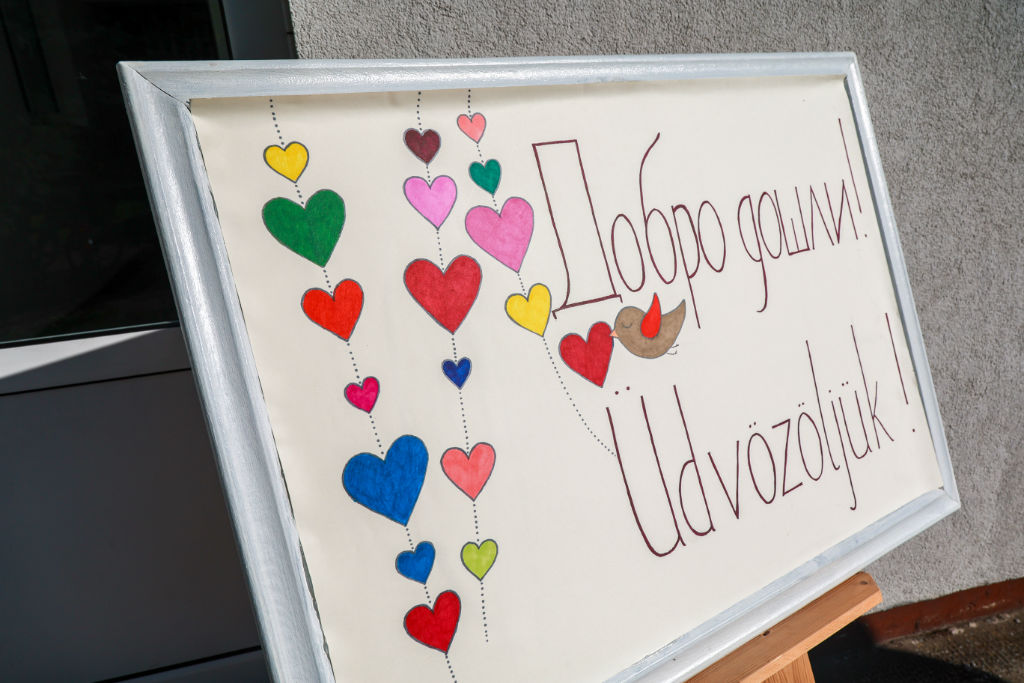 Добро дошли!
Üdvözöljük!